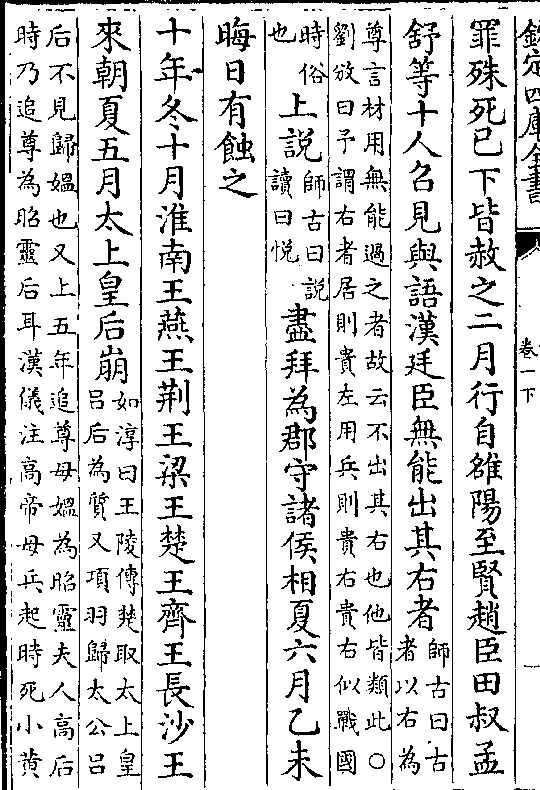 欽定四庫全書
卷一下
罪殊死已下皆赦之二月行自雒陽至賢趙臣田叔孟
舒等十人召見與語漢廷臣無能出其右者
師古曰古
者以右為
尊言材用無能過之者故云不出其右也他皆類此○
劉攽曰予謂右者居則貴左用兵則貴右貴右似戰國
時俗
也
上說
師古曰說
讀曰悅
盡拜為郡守諸侯相夏六月乙未
晦日有蝕之
十年冬十月淮南王燕王荆王梁王楚王齊王長沙王
來朝夏五月太上皇后崩
如淳曰王陵傳楚取太上皇
呂后為質又項羽歸太公呂
后不見歸媼也又上五年追尊母媼為昭靈夫人高后
時乃追尊為昭靈后耳漢儀注高帝母兵起時死小黃